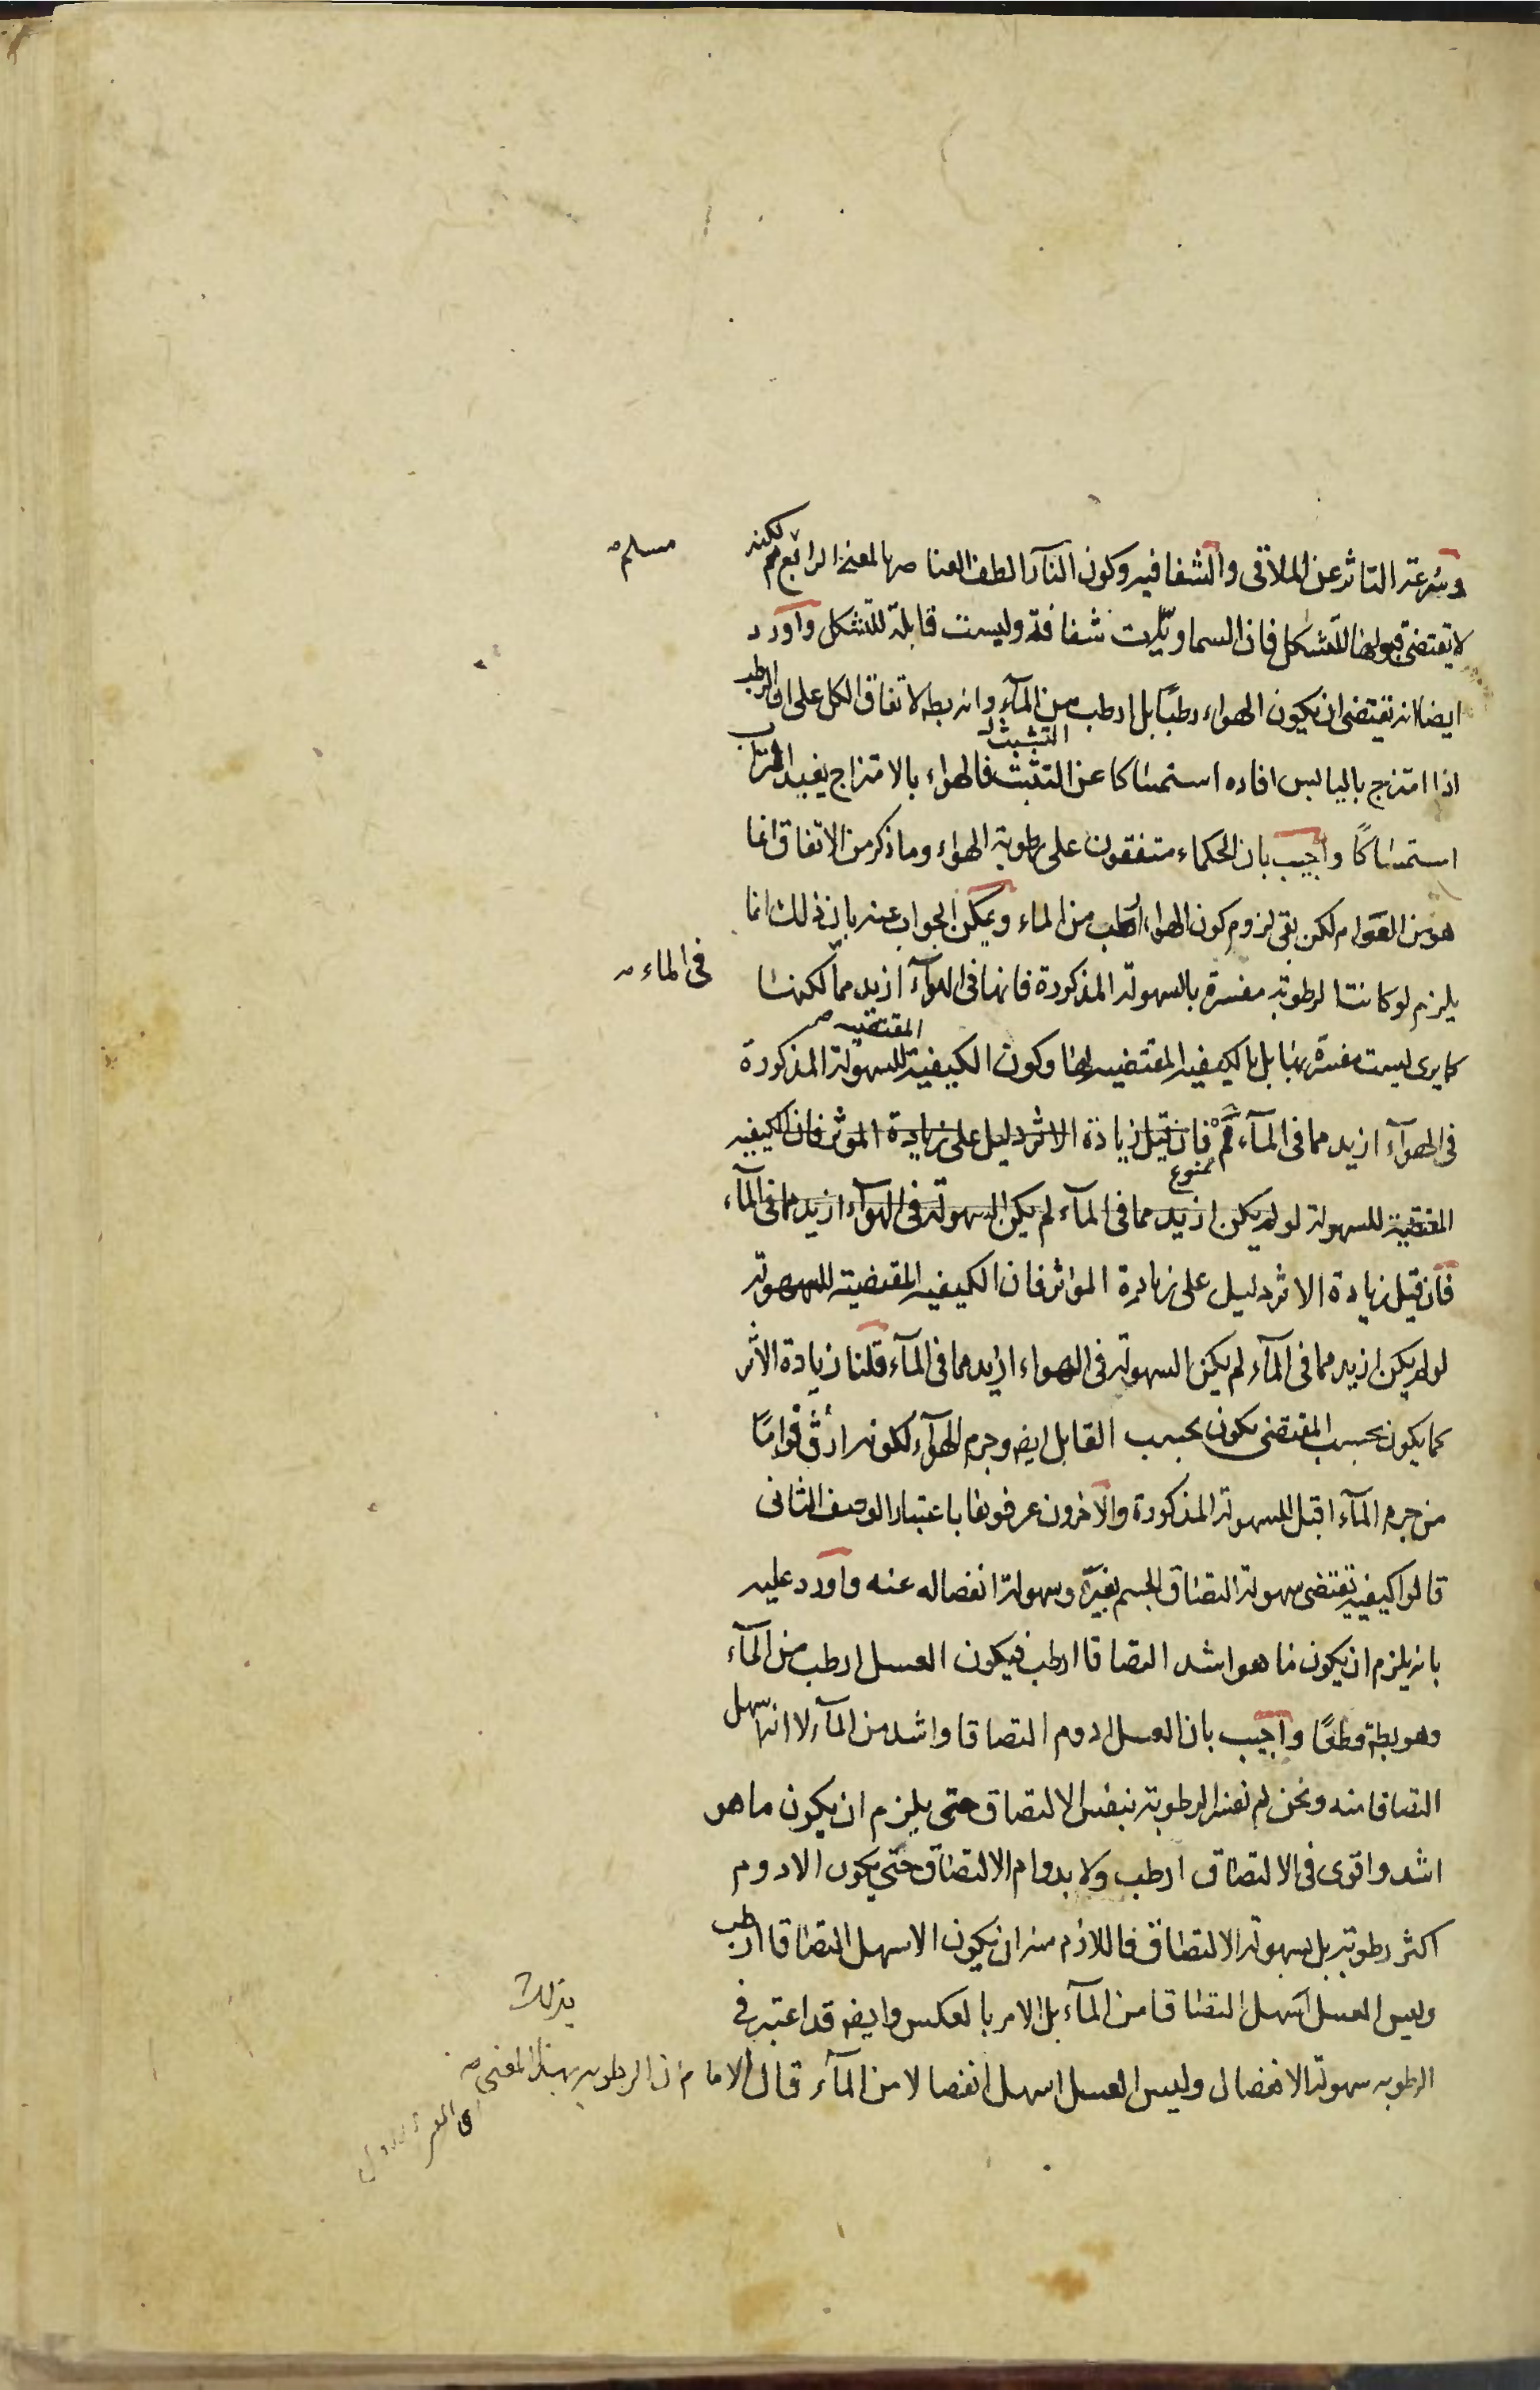 وسرعة التاثر عن الملاقى والشفافيه وكون النار الطف العناصر بالمعنى الرابع مم لكنه
مسلم
لا يقتضى قبولها للتشكل فان السماويات شفافة وليست قابلة للتشكل واورد
ايضا انه يقتضى ان يكون الهواء رطبًا بل ارطب من الماء وانه بط لاتفاق الكل على ان الرطب
اذا امتزج باليابس افاده استمساكا عن التشتت فالهواء بالامتزاج يفيد التراب
التشتت
استمساكًا واجيب بان الحكماء متفقون على رطوبة الهواء وما ذكر من الاتفاق انما
هو من العوام لكن بقى لزوم كون الهواء ارطب من الماء ويمكن الجواب عنه بان ذلك انما
يلزم لو كانت الرطوبة مفسرة بالسهولة المذكورة فانها فى الهوآء ازيد مما لكنها
فى الماء
كما يرى ليست مفسرة بها بل بالكيفيه المقتضيه لها وكون الكيفية للسهولة المذكورة
المقتضيه
فى الهوآء ازيد مما فى المآء مم فان قيل زيادة الاثر دليل على زيادة الموثر فان الكيفيه
ممنوع
المقتضية للسهولة لو لم يكن ازيد مما فى المآء لم يكن السهولة فى الهوآء ازيد مما فى المآء
فان قيل زيادة الاثر دليل على زيادة المؤثر فان الكيفيه المقتضية للسهولة
لو لم يكن ازيد مما فى المآء لم يكن السهولة فى الهواء ازيد مما فى المآء قلنا زيادة الاثر
كما يكون بحسب المقتضى يكون بحسب القابل ايضا وجرم الهوآء لكونه ارق قوامًا
من جرم المآء اقبل للسهولة المذكورة والآخرون عرفوها باعتبار الوصف الثانى
قالوا كيفية تقتضى سهولة التصاق الجسم بغيره وسهولة انفصاله عنه واورد عليه
بانه يلزم ان يكون ما هو اشد التصاقا ارطب فيكون العسل ارطب من المآء
وهو بط قطعًا واجيب بان العسل ادوم التصاقا واشد من المآء لا انه اسهل
التصاقا منه ونحن لم نفسر الرطوبة بنفس الالتصاق حتى يلزم ان يكون ما هو
اشد واقوى فى الالتصاق ارطب ولا بدوام الالتصاق حتى يكون الادوم
اكثر رطوبة بل بسهولة الالتصاق فاللازم منه ان يكون الاسهل التصاقا ارطب
وليس العسل اسهل التصاقا من المآء بل الامر بالعكس وايضا قد اعتبر فى
الرطوبه سهولة الانفصال وليس العسل اسهل انفصالا من المآء قال الامام ان الرطوبه بهذا المعنى
بذلك